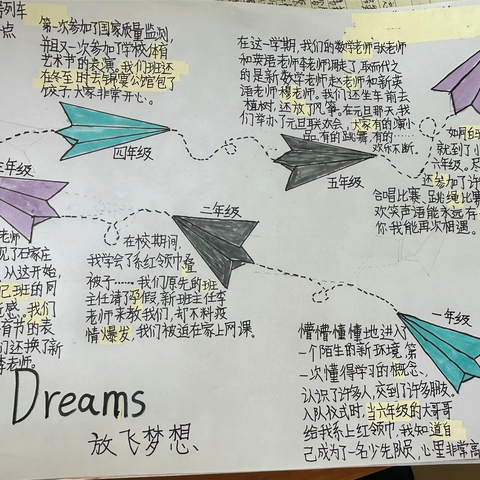 列车
点
第一次参加了国家质量监测,
并且又一次参加了学校体育
艺术节的表演。我们班还
在冬至时去锦宴公馆包了
饺子,大家非常开心。
四年级
在这一学期,我们的数学老师张老师
和英语老师李老师调走了,取而代之
的是新数学老师赵老师和新英
语老师穆老师。我们还坐车前去
植树,还放了风筝。在元旦那天,我
们举办了元旦联欢会,大家有的演小
品,有的跳舞,有的……
欢乐不断。
五年级
就到了小
六年级。
还参加了许
合唱比赛、跳绳比赛
欢笑声语能永远存
你我能再次相遇。
三年级
老师
见了石家庄
从这开始,
己班的同
我们
育节的表
们还换了新
李老师。
二年级
在校期间,
我学会了系红领巾、叠
被子……我们原先的班
主任请了孕假,新班主任李
老师来教我们,却不料疫
情爆发,我们被迫在家上网课。
一年级
懵懵懂懂地进入了
一个陌生的新环境,第
一次懂得学习的概念、
认识了许多人,交到了许多朋友。
入队仪式时,当六年级的大哥哥
给我系上红领巾,我知道自
己成为了一名少先队员,心里非常高
Dreams
放飞梦想、